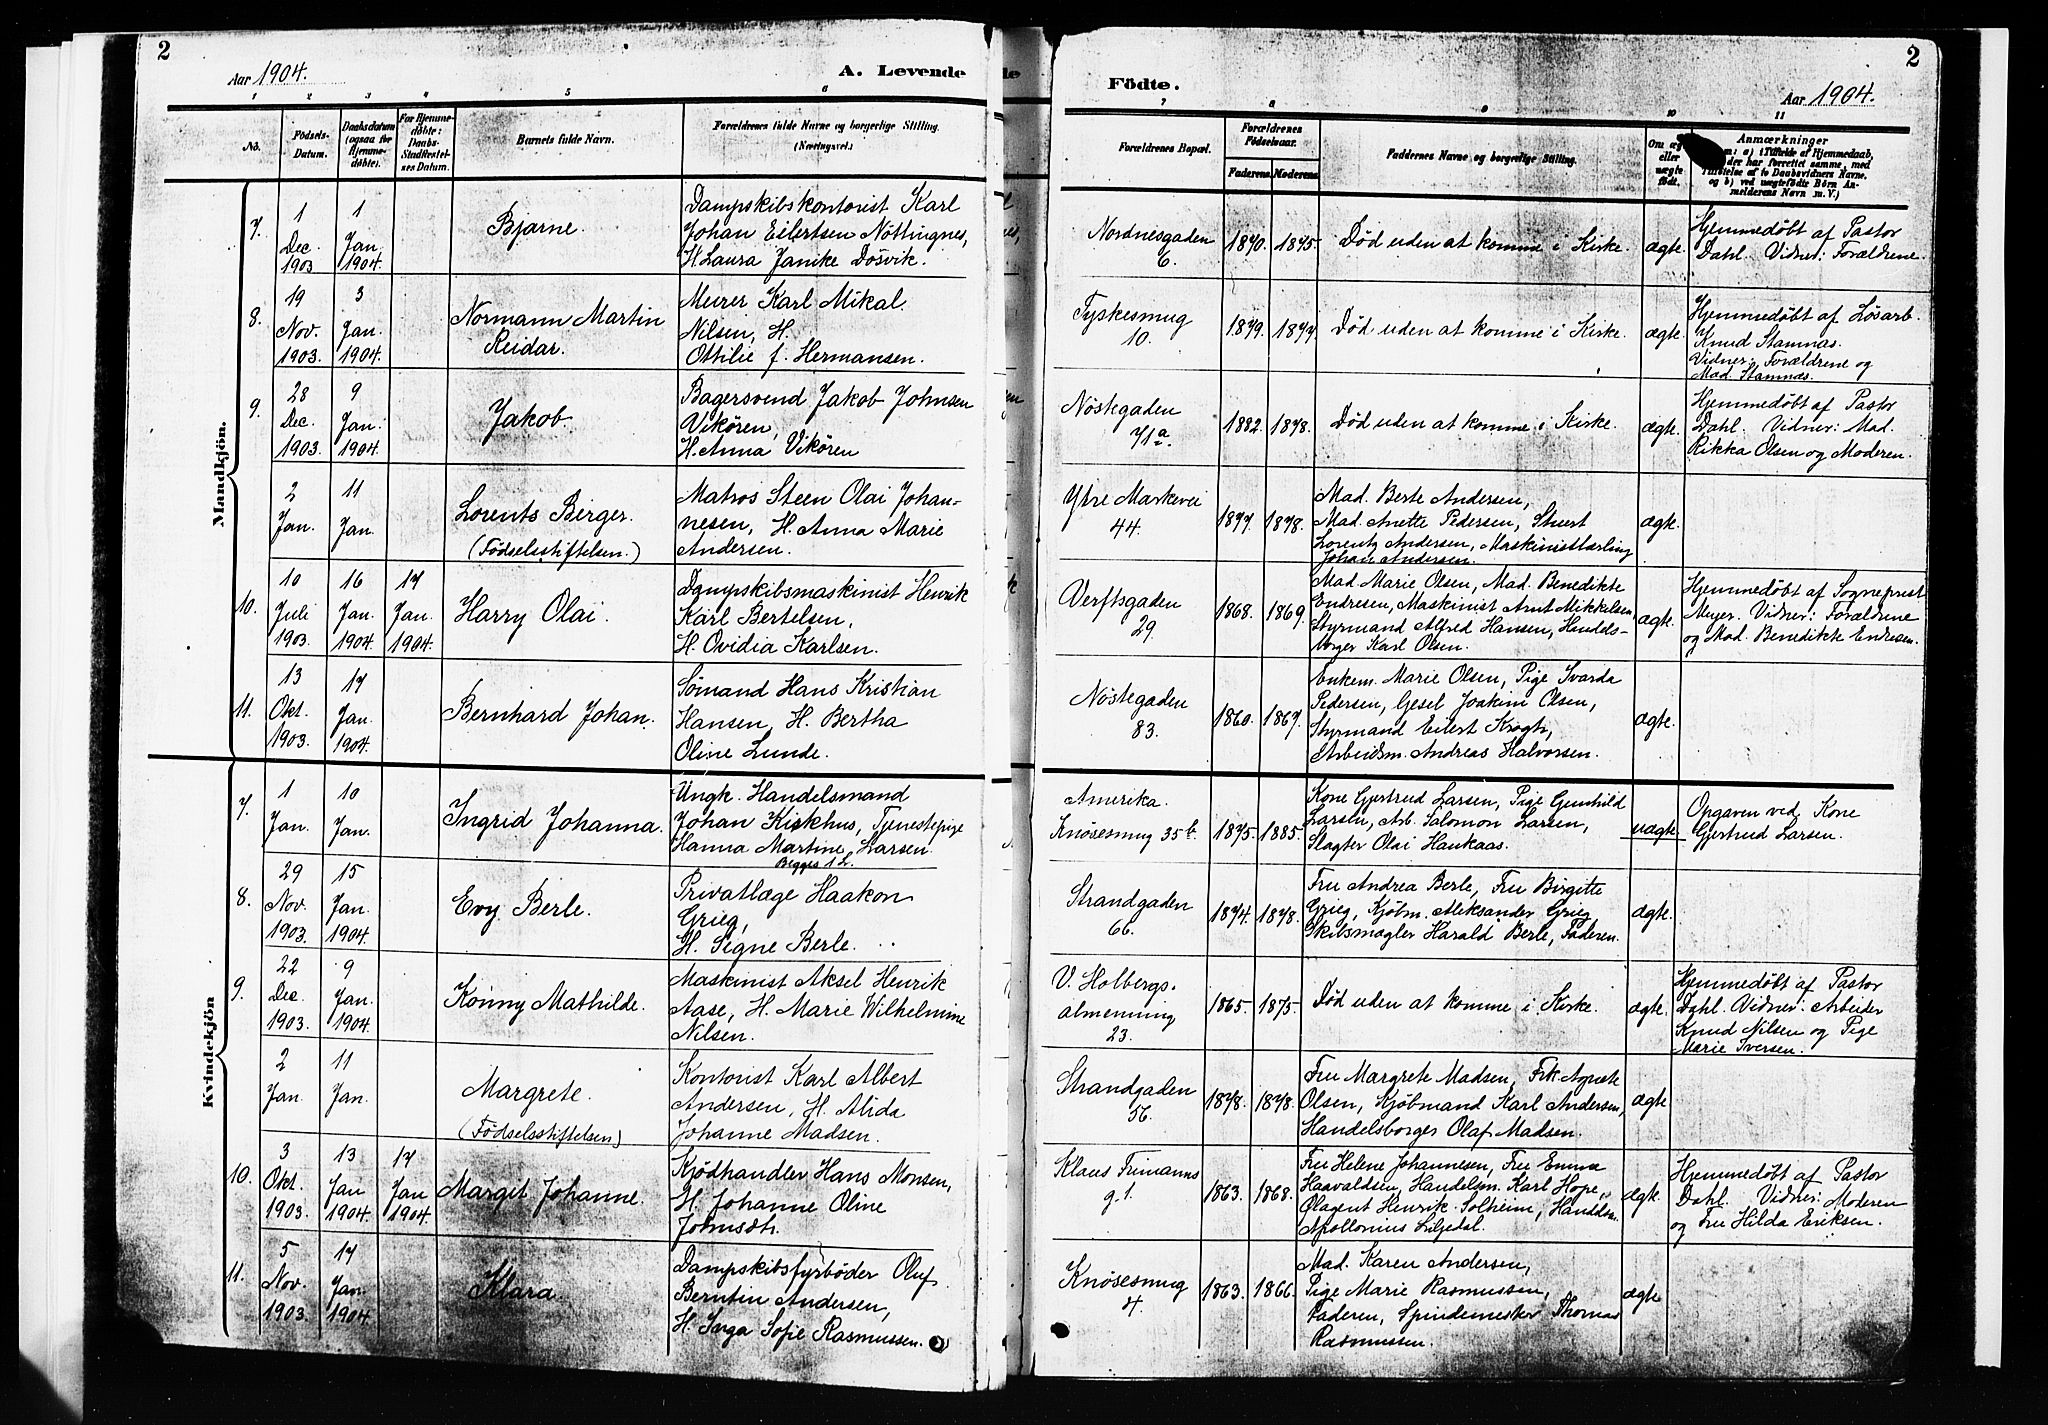 2
Aar 1904.
A. Levende
1 2 3 4 5 6
No.
Födsels-
Datum.
Daabsdatum
(ogsaa for
Hjemme-
döbte).
For Hjemme-
döbte:
Daabs-
Stadfæstel-
ses Datum.
Barnets fulde Navn.
Forældrenes fulde Navne og borgerlige Stilling.
(Næringsvei.)
Mandkjön.
7.
1
Dec.
1903
1
Jan.
1904.
Bjarne.
Dampskibskontorist Karl
Johan Eilertsen Nöttingnes,
H. Laura Janike Dosvik.
8.
19
Nov.
1903.
3
Jan.
1904.
Normann Martin
Reidar.
Murer Karl Mikal
Nilsen, H.
Ottilie f. Hermansen.
9.
28
Dec.
1903.
9
Jan.
1904.
Jakob.
Bagersvend Jakob Johnsen
Vikören,
H. Anna Vikören
2
Jan.
11
Jan.
Lorents Birger.
(Födselsstiftelsen.)
Matros Steen Olai Johan-
nesen, H. Anna Marie
Andersen.
10.
10
Juli
1903.
16
Jan.
1904.
17
Jan.
1904.
Harry Olai.
Dampskibsmaskinist Henrik
Karl Bertelsen,
H. Ovidia Karlsen.
11.
13
Okt.
1903.
17
Jan.
1904.
Bernhard Johan.
Sömand Hans Kristian
Hansen, H. Bertha
Oline Lunde.
Kvindekjön
7.
1
Jan.
10
Jan.
Ingrid Johanna.
Ungk. Handelsmand
Johan Kirkhus, Tjenestepige
Hanna Martine Larsen
Begges 1 L.
8.
29
Nov.
1903.
15
Jan.
1904.
Evy Berle.
Privatlæge Haakon
Grieg,
H. Signe Berle.
9.
22
Dec.
1903.
9
Jan.
1904
Konny Mathilde.
Maskinist Aksel Henrik
Aase, H. Marie Wilhelmine
Nilsen.
2
Jan.
11
Jan.
Margrete.
(Födselsstiftelsen)
Kontorist Karl Albert
Andersen, H. Alida
Johanne Madsen.
10.
3
Okt.
1903.
13
Jan
1904.
17
Jan
1904.
Margit Johanne.
Kjödhandler Hans Monsen,
H. Johanne Oline
Johnsdtr.
11.
5
Nov.
1903
17
Jan.
1904
Klara.
Dampskibsfyrböder Oluf
Berntin Andersen,
H. Inga Sofie Rasmussen.
2
Födte.
Aar 1904.
7 8 9 10 11
Forældrenes Bopæl.
Forældrenes
Födselsaar.
Faderens. Moderens.
Faddernes Navne og borgerlige Stilling.
Om ægte
eller
uægte
födt.
Anmærkninger
Nordnesgaden
6.
1870. 1875.
Död uden at komme i Kirke.
ægte.
Hjemmedöbt af Pastor
Dahl. Vidner: Forældrene.
Tyskesmug
10.
1879. 1877.
Död uden at komme i Kirke.
ægte.
Hjemmedöbt af Lösarb.
Knud Stamnas.
Vidner: Forældrene og
Mad. Stamnæs.
Nöstegaden
71a.
1882. 1878.
Död uden at komme i Kirke.
ægte.
Hjemmedöbt af Pastor
Dahl. Vidner: Mad.
Rikka Olsen og Moderen.
Ytre Markevei
44.
1877. 1878.
Mad. Berte Andersen,
Mad. Anette Pedersen, Stuert
Lorentz Andersen, Maskinistlærling
Johan Andersen.
ægte.
Verftsgaden
29.
1868. 1869.
Mad Marie Olsen, Mad. Benedikte
Endresen, Maskinist Arnt Mikkelsen,
Styrmand Alfred Hansen, Handels-
borger Karl Olsen.
ægte.
Hjemmedöbt af Sogneprest
Meyer. Vidner: Forældrene
og Mad. Benedikte Endresen.
Nöstegaden
83.
1860. 1867.
Enkem. Marie Olsen, Pige Svarda
Pedersen, Gesel Joakim Olsen,
Styrmand Eilert Krogh,
Arbeidsm. Andreas Halvorsen.
ægte.
Amerika.
Knösesmug 35b.
1875. 1885.
Kone Gjertrud Larsen, Pige Gunhild
Larsen, Arb. Salomon Larsen,
Slagter Olai Haukaas.
uægte.
Opgaven ved Kone
Gjertrud Larsen.
Strandgaden
66.
1874. 1878.
Fru Andrea Berle, Fru Birgitte
Grieg, Kjöbm. Aleksander Grieg,
Skibsmægler Harald Berle, Faderen.
ægte.
V. Holbergs-
almenning
23.
1865. 1875.
Död uden at komme i Kirke.
ægte.
Hjemmedöbt af Pastor
Dahl. Vidner: Arbeider
Knud Nilsen og Pige
Marie Iversen.
Strandgaden
56.
1878. 1878.
Fru Margrete Madsen, Frk. Agnete
Olsen, Kjöbmand Karl Andersen,
Handelsborger Olaf Madsen.
ægte
Klaus Frimanns
g. 1.
1863. 1868.
Fru Helene Johannesen, Fru Emma
Haavaldsen, Handelsm. Karl Hope,
Ølagent Henrik Solheim, Handelsm.
Apollonius Liljedal.
ægte.
Hjemmedöbt af Pastor
Dahl. Vidner: Moderen
og Fru Hilda Eriksen.
Knösesmug
4.
1863. 1866.
Mad. Karen Andersen,
Pige Marie Rasmussen,
Faderen, Spindemester Thomas
Rasmussen.
ægte.